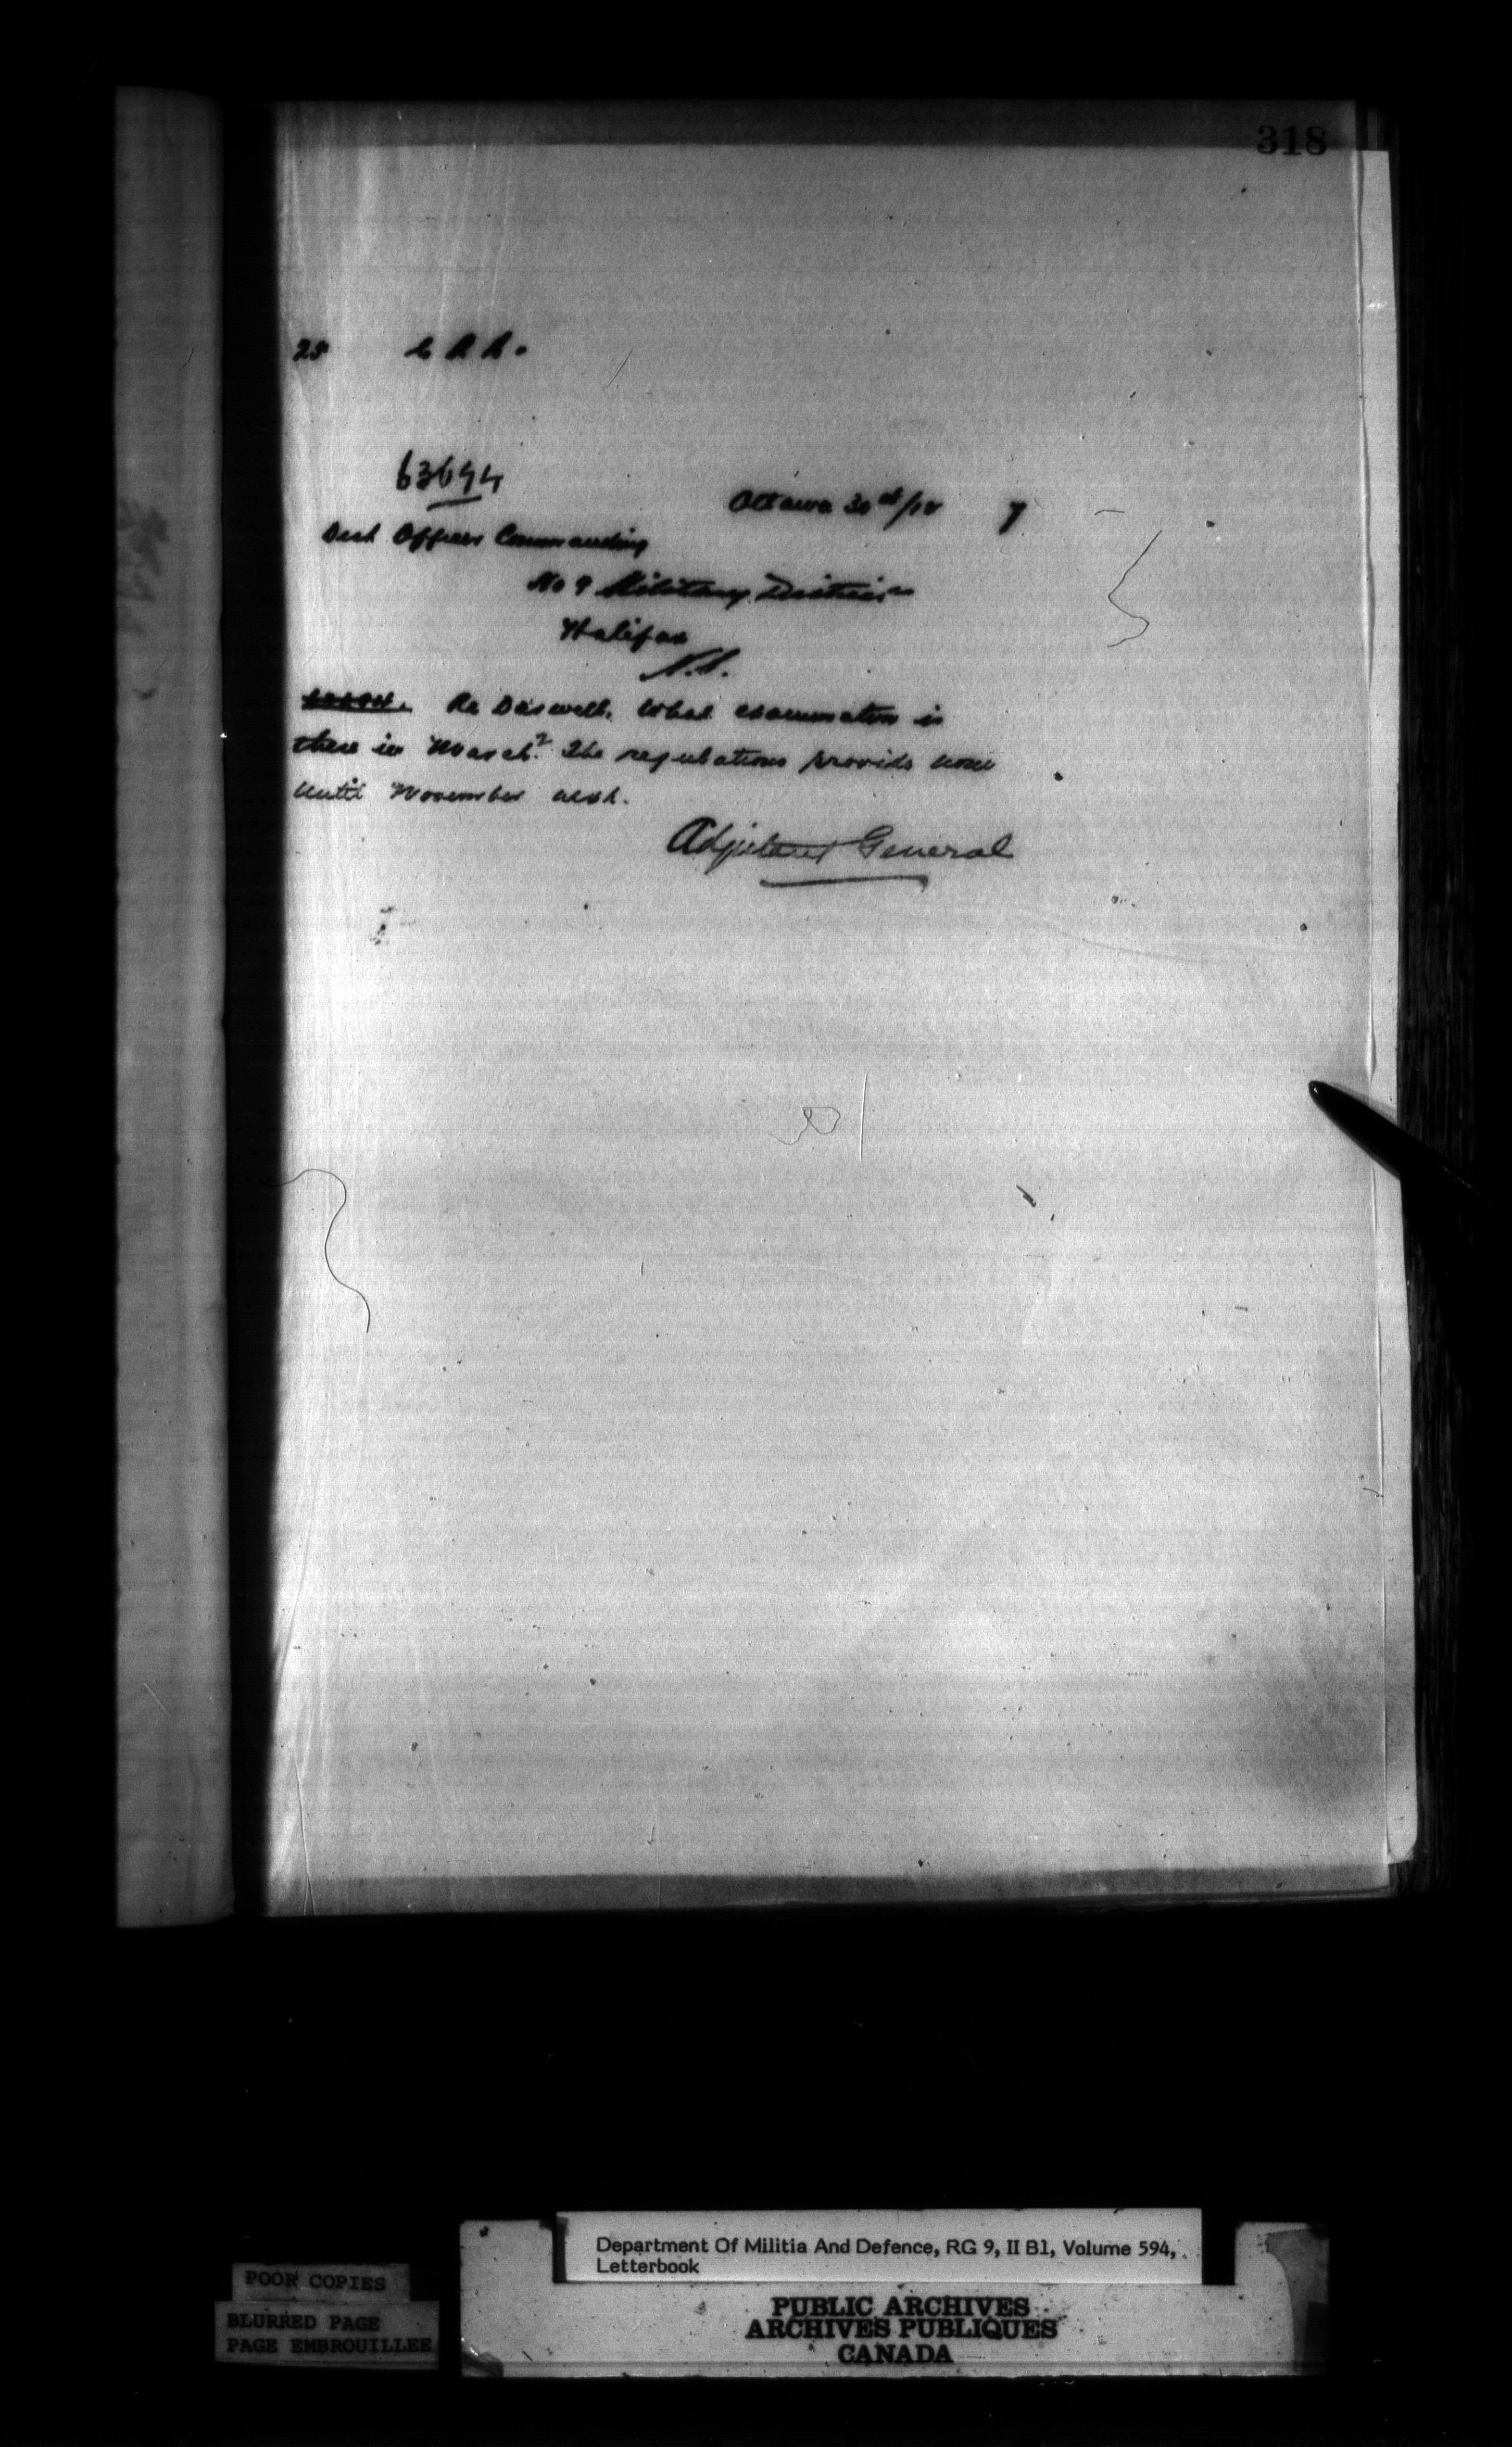 318
25
63694
Ottawa 30
Dist Officer Commanding
No 9 Military District
Halifax
N.S.
Re What examination is
there in March? The regulations provide none
until November next.
Adjutant General
Department Of Militia And Defence, RG 9, II B1, Volume 594,
Letterbook
POOR COPIES
BLURRED PAGE
PAGE EMBROUILLEE
PUBLIC ARCHIVES
ARCHIVES PUBLIQUES
CANADA